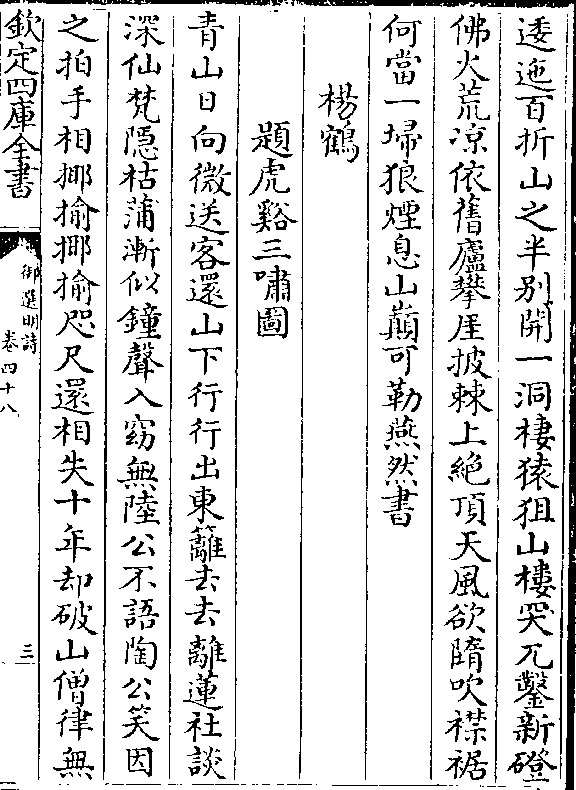 逶迤百折山之半别開一洞棲猿狙山樓突兀鑿新磴
佛火荒凉依舊廬攀崖披棘上絶頂天風欲隋吹襟裾
何當一掃狼煙息山巔可勒燕然書
楊鶴
題虎谿三嘯圖
青山日向微送客還山下行行出東籬去去離蓮社談
深仙梵隠祜蒲漸似鐘聲入窈無陸公不語陶公笑因
之拍手相揶揄揶揄咫尺還相失十年却破山僧律無
欽定四庫全書
御選明詩
卷四十八
三